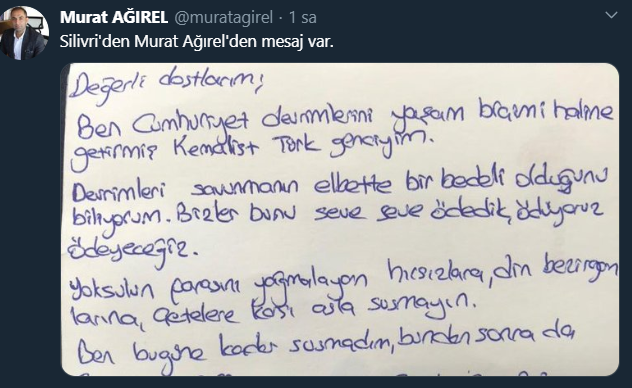 Murat AĞIREL @muratagirel · 1 sa
Silivri'den Murat Ağırel'den mesaj var.
Değerli dostlarım;
Ben Cumhuriyet devrimlerini yaşam biçimi haline
getirmiş Kemalist Türk genciyim.
Devrimleri savunmanın elbette bir bedeli olduğunu
biliyorum. Bizler bunu seve seve ödedik, ödüyoruz
ödeyeceğiz.
Yoksulun parasını yağmalayan hırsızlara, din bezirgan
larına, çetelere karşı asla susmayın.
Ben bugüne kadar susmadım, bundan sonra da